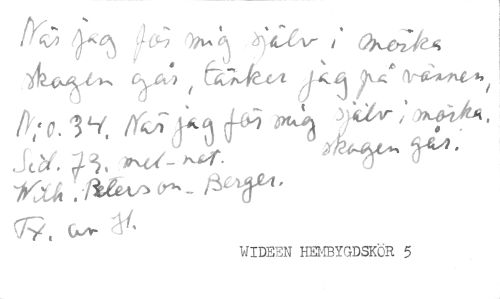 När jag för mig själv i mörka
skogen går, tänker jag på vännen,
N:o. 34. När jag för mig själv i mörka.
skogen går.
Sid. 73. mel-not.
Wilh. Peterson-Berger.
Tx. av H.
WIDEEN HEMBYGDSKÖR 5